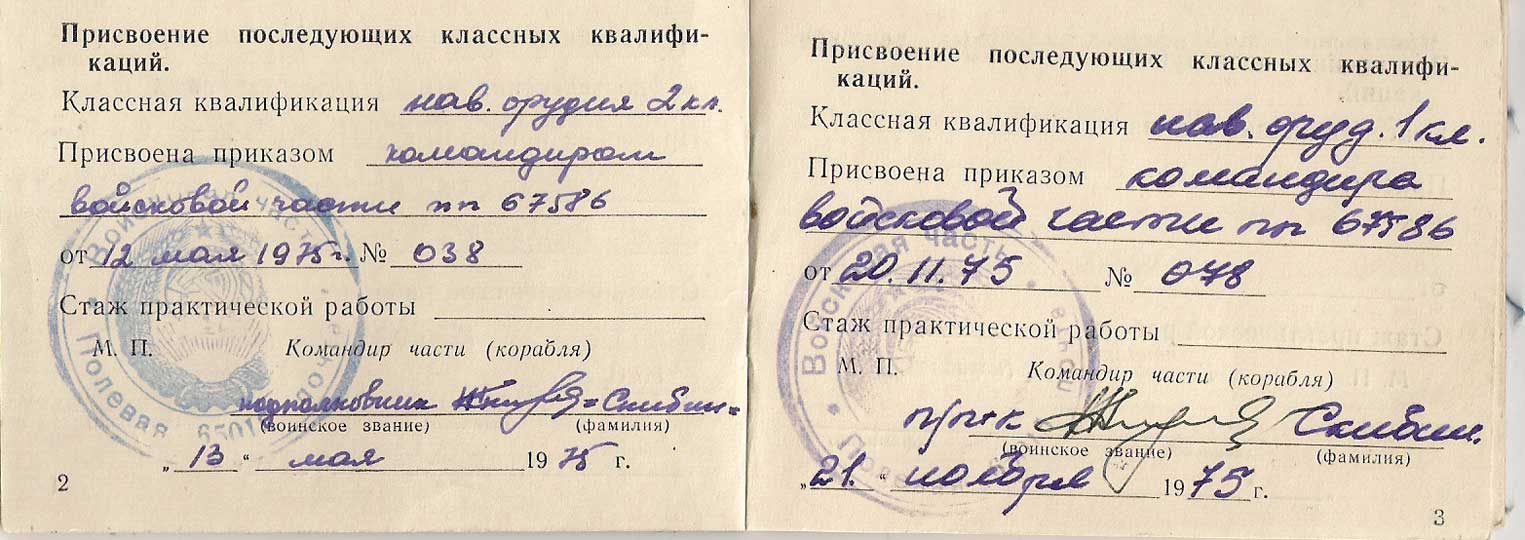 Присвоение последующих классных квалифи-
каций.
Классная квалификация нав. орудия 2 кл.
Присвоена приказом командиром
войсковой части пп 67586
от 12 мая 1975 г. № 038
Стаж практической работы
М. П. Командир части (корабля)
подполковник =Скибин=
(воинское звание) (фамилия)
„13“ мая 1975 г.
2
Войсковая часть
Полевая
Присвоение последующих классных квалифи-
каций.
Классная квалификация нав. оруд. 1 кл.
Присвоена приказом командира
войсковой части пп 67586
от 20.11.75 № 078
Стаж практической работы
М. П. Командир части (корабля)
п/п-к Скибин.
(воинское звание) (фамилия)
„21.“ ноября 1975 г.
3
Войсковая часть